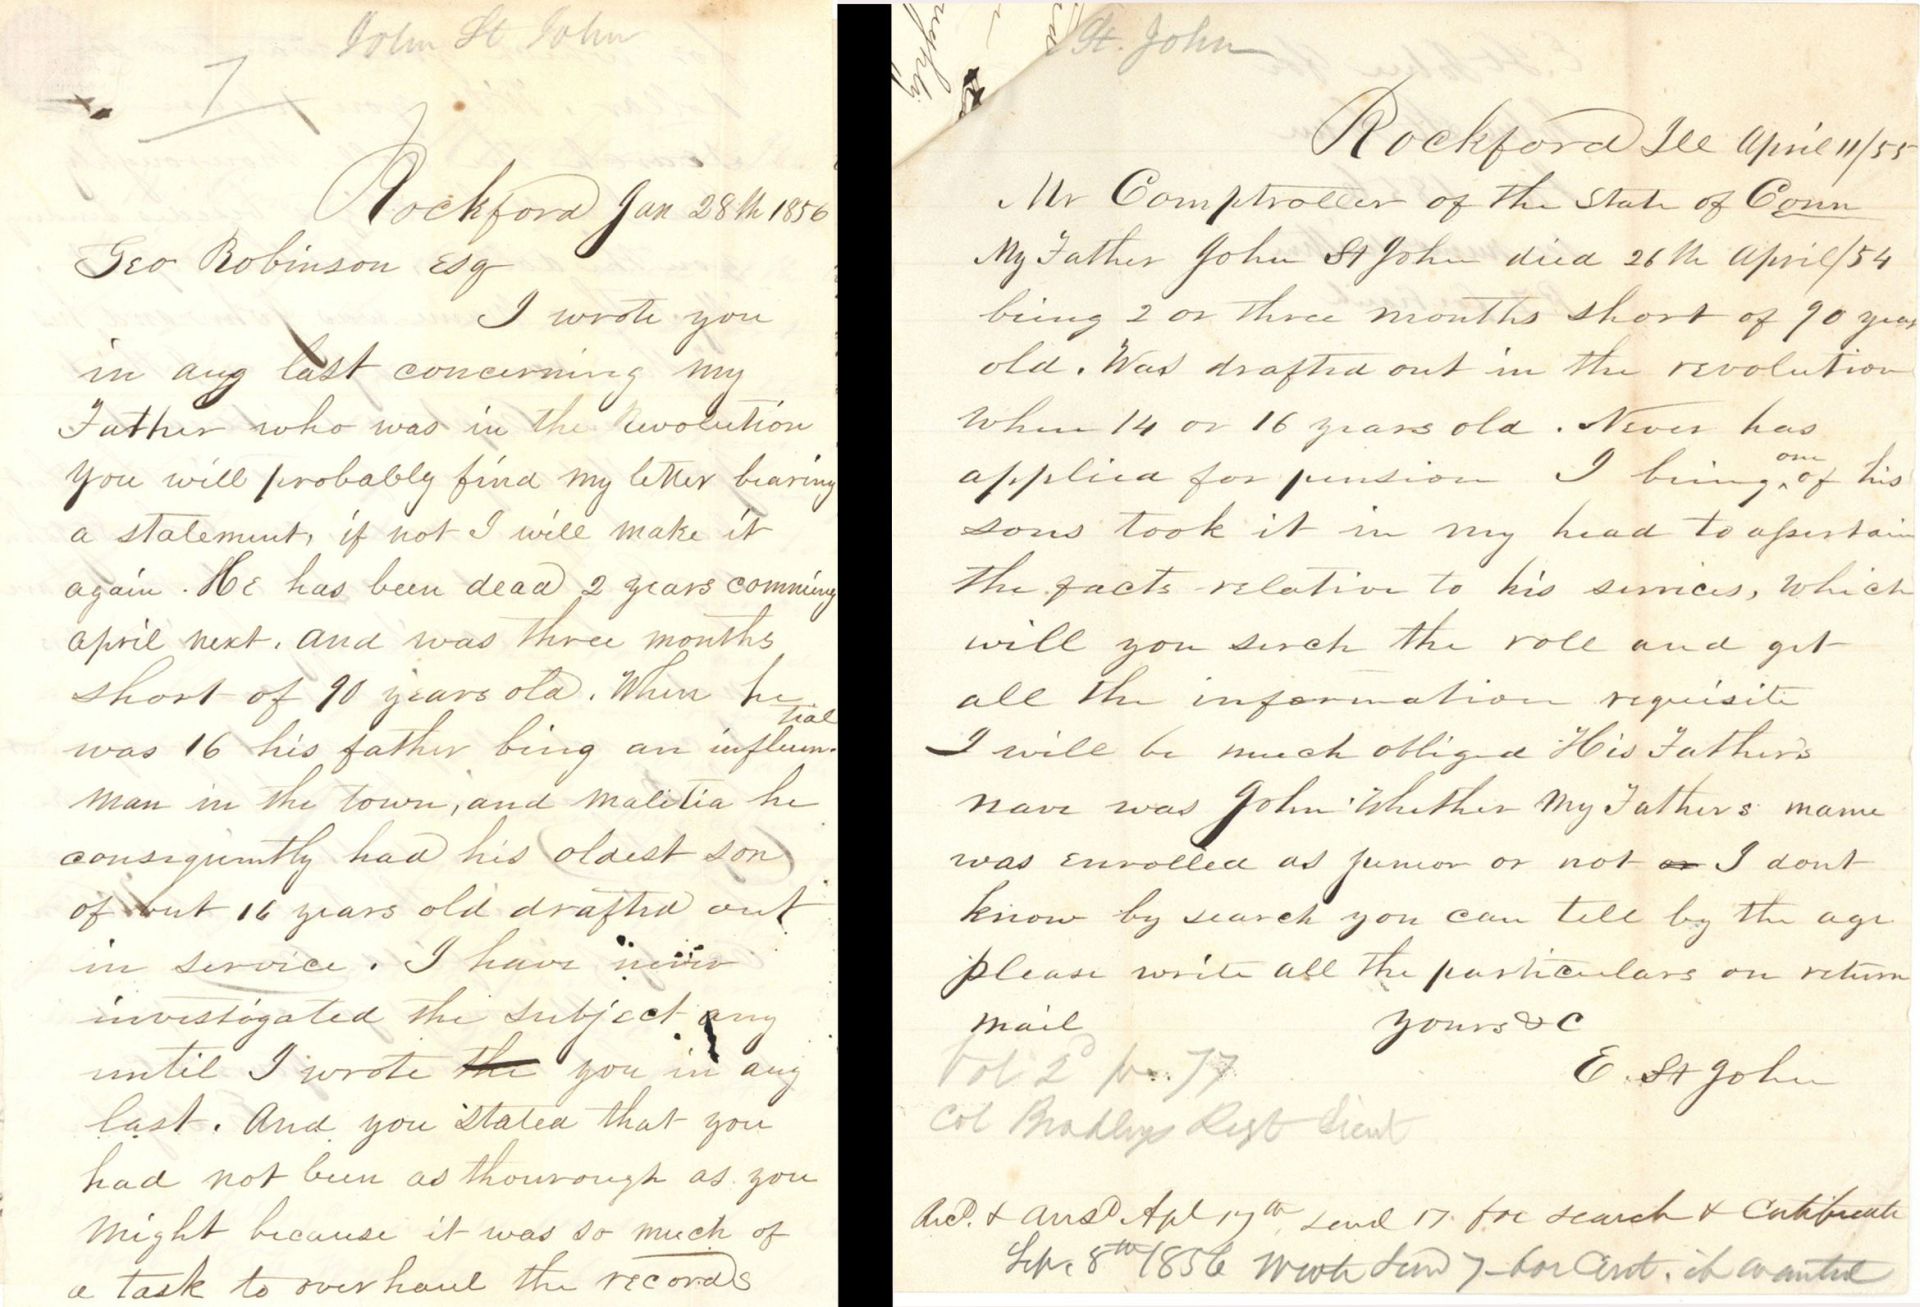 John St John
7
Rockford Jan 28th 1856
Geo Robinson Esq
I wrote you
in aug last concerning my
Father who was in the Revolution
you will probably find my letter bearing
a statement, if not I will make it
again. He has been dead 2 years comming
april next. and was three months
short of 90 years old. When he
was 16 his father bing an influen-tial
man in the town, and malitia he
consequently had his oldest son
of but 16 years old drafted out
in service. I have never
investogated the subject any
until I wrote the you in aug
last. And you stated that you
had not been as thourough as you
might because it was so much of
a task to overhaul the records
St. John
Rockford Ill April 11/55
Mr Comptroller of the State of Conn
My Father John St John died 26th April/54
being 2 or three months short of 90 years
old. Was drafted out in the revolution
when 14 or 16 years old. Never has
applied for pension I being one of his
sons took it in my head to assertain
the facts relative to his services, which
will you serch the roll and get
all the information requisite
I will be much obliged His Fathers
name was John Whether My Fathers name
was enrolled as junior or not or I dont
know by search you can tell by the age
please write all the particulars on return
mail yours &C
E. St John
Vol 2d p. 77
Col Bradleys Regt
Recd. & ansd. Apl 17th, send 17 for search & Certificate
Sep. 8th 1856 Wrote Send 7 for Cert. if wanted